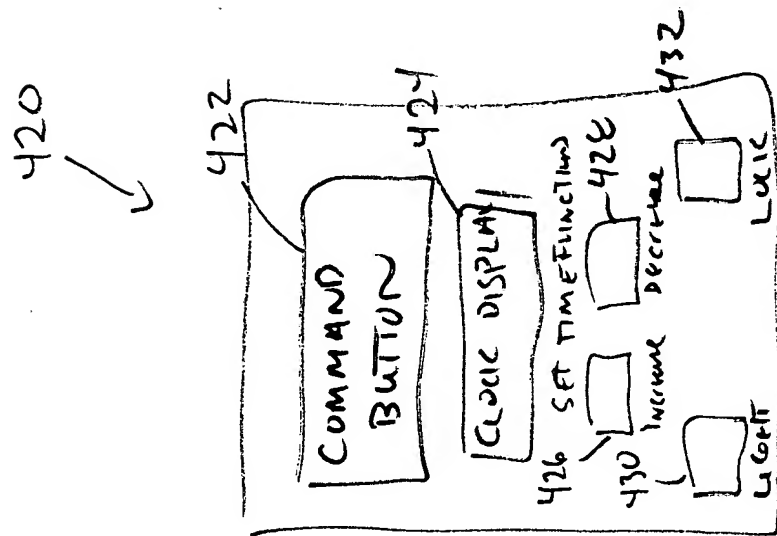 420
422
COMMAND
BUTTON
424
CLOCK DISPLAY
SET TIME FUNCTION
426
428
INCREASE
DECREASE
430
432
LIGHT
LOCK